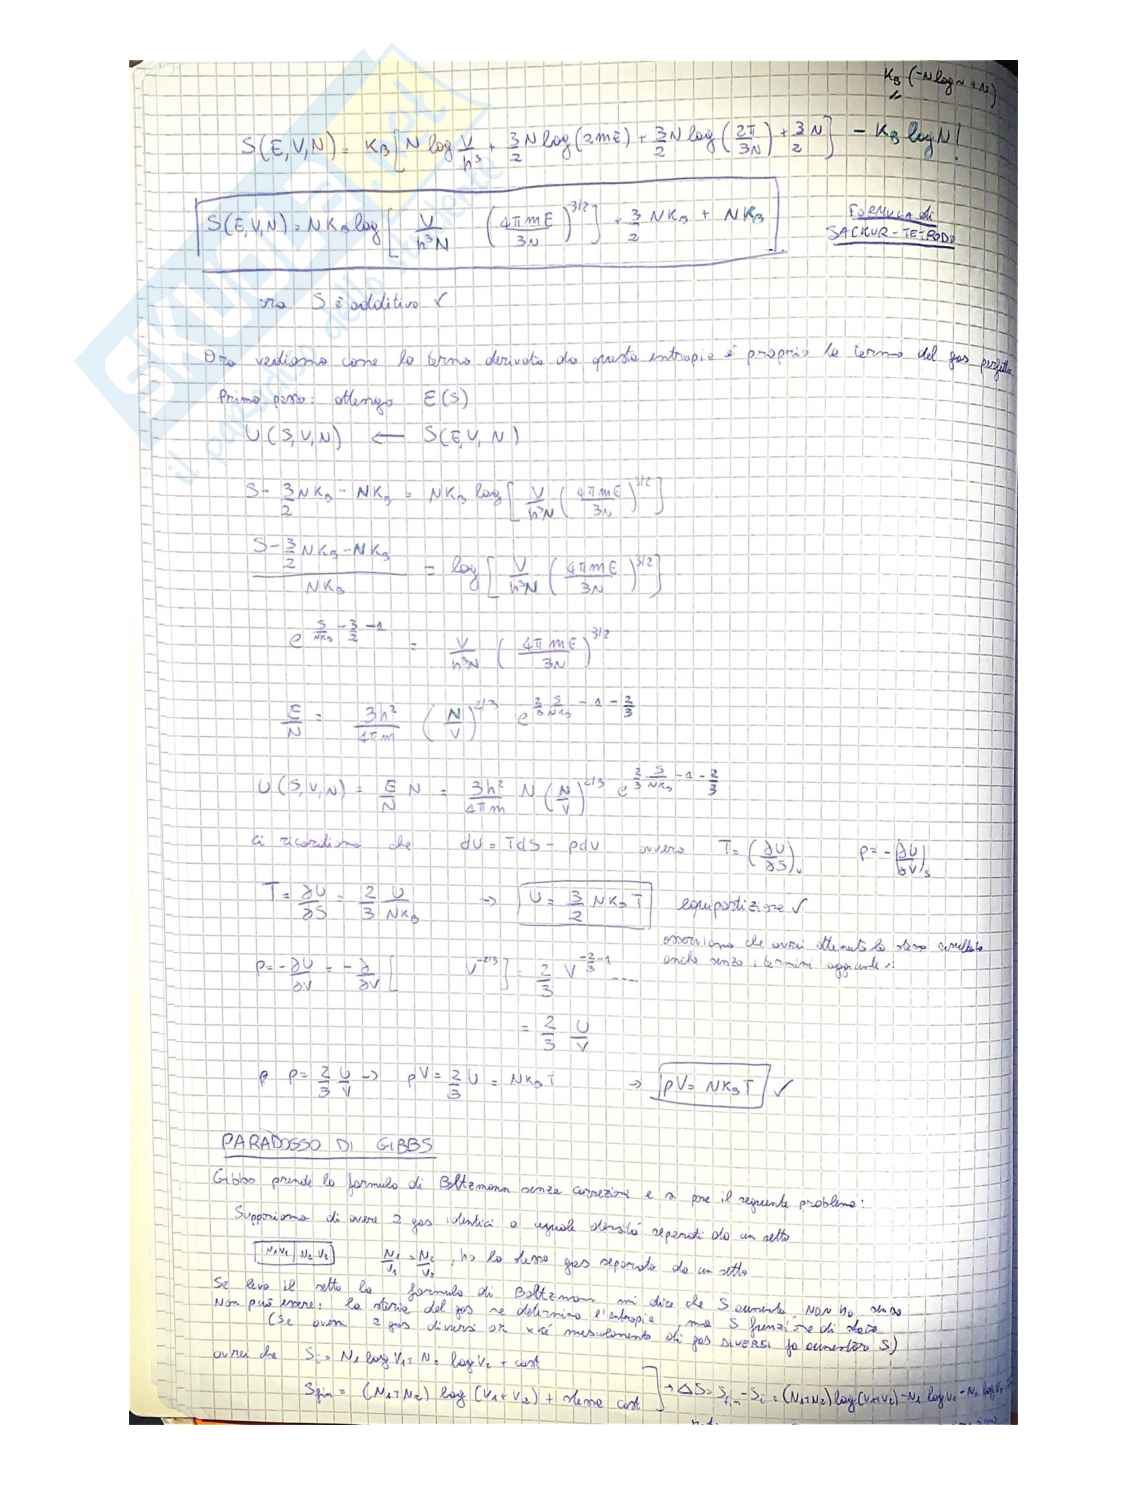 K_B (-N log N + N)
S(E,V,N) = K_B [N log V/h³ + 3/2 N log(2mE) + 3/2 N log(2π/3N) + 3/2 N] - K_B log N!
S(E,V,N) = N K_B log [V/h³N (4πmE/3N)^3/2] + 3/2 N K_B + N K_B
FORMULA di SACKUR-TETRODE
ora S è additivo ✓
Ora vediamo come la termo derivata da questa entropia è proprio la termo del gas perfetto
Primo passo: ottengo E(S)
U(S,V,N) ← S(E,V,N)
S - 3/2 N K_B - N K_B = N K_B log [V/h³N (4πmE/3N)^3/2]
(S - 3/2 N K_B - N K_B)/(N K_B) = log [V/h³N (4πmE/3N)^3/2]
e^(S/NK_B - 3/2 - 1) = V/h³N (4πmE/3N)^3/2
E/N = 3h²/4πm (N/V)^2/3 e^(2/3 S/NK_B - 1 - 2/3)
U(S,V,N) = E/N N = 3h²/4πm N (N/V)^2/3 e^(2/3 S/NK_B - 1 - 2/3)
Ci ricordiamo che dU = TdS - pdV ovvero T = (∂U/∂S)_V p = -(∂U/∂V)_S
T = ∂U/∂S = 2/3 U/NK_B → U = 3/2 N K_B T equipartizione ✓
osserviamo che avrei ottenuto lo stesso risultato
anche senza i termini aggiuntivi
p = -∂U/∂V = -∂/∂V [ V^-2/3] = 2/3 V^(-2/3-1) ....
= 2/3 U/V
p p = 2/3 U/V → pV = 2/3 U = N K_B T → pV = N K_B T ✓
PARADOSSO DI GIBBS
Gibbs prende la formula di Boltzmann senza correzioni e si pone il seguente problema:
Supponiamo di avere 2 gas identici a uguale densità separati da un setto
N₁V₁ | N₂V₂ N₁/V₁ = N₂/V₂, ho lo stesso gas separato da un setto
Se levo il setto la formula di Boltzmann mi dice che S aumenta NON ha senso
Non può essere: la storia del gas ne determina l'entropia, ma S funzione di stato
(Se avevo 2 gas diversi ok xké mescolamento di gas DIVERSI fa aumentare S)
avrei che S_i = N₁ log V₁ + N₂ log V₂ + cost
S_fin = (N₁+N₂) log (V₁+V₂) + stessa cost → ΔS = S_fin - S_i = (N₁+N₂) log(V₁+V₂) - N₁ log V₁ - N₂ log V₂
SKUOLA.net
il paradiso dello studente